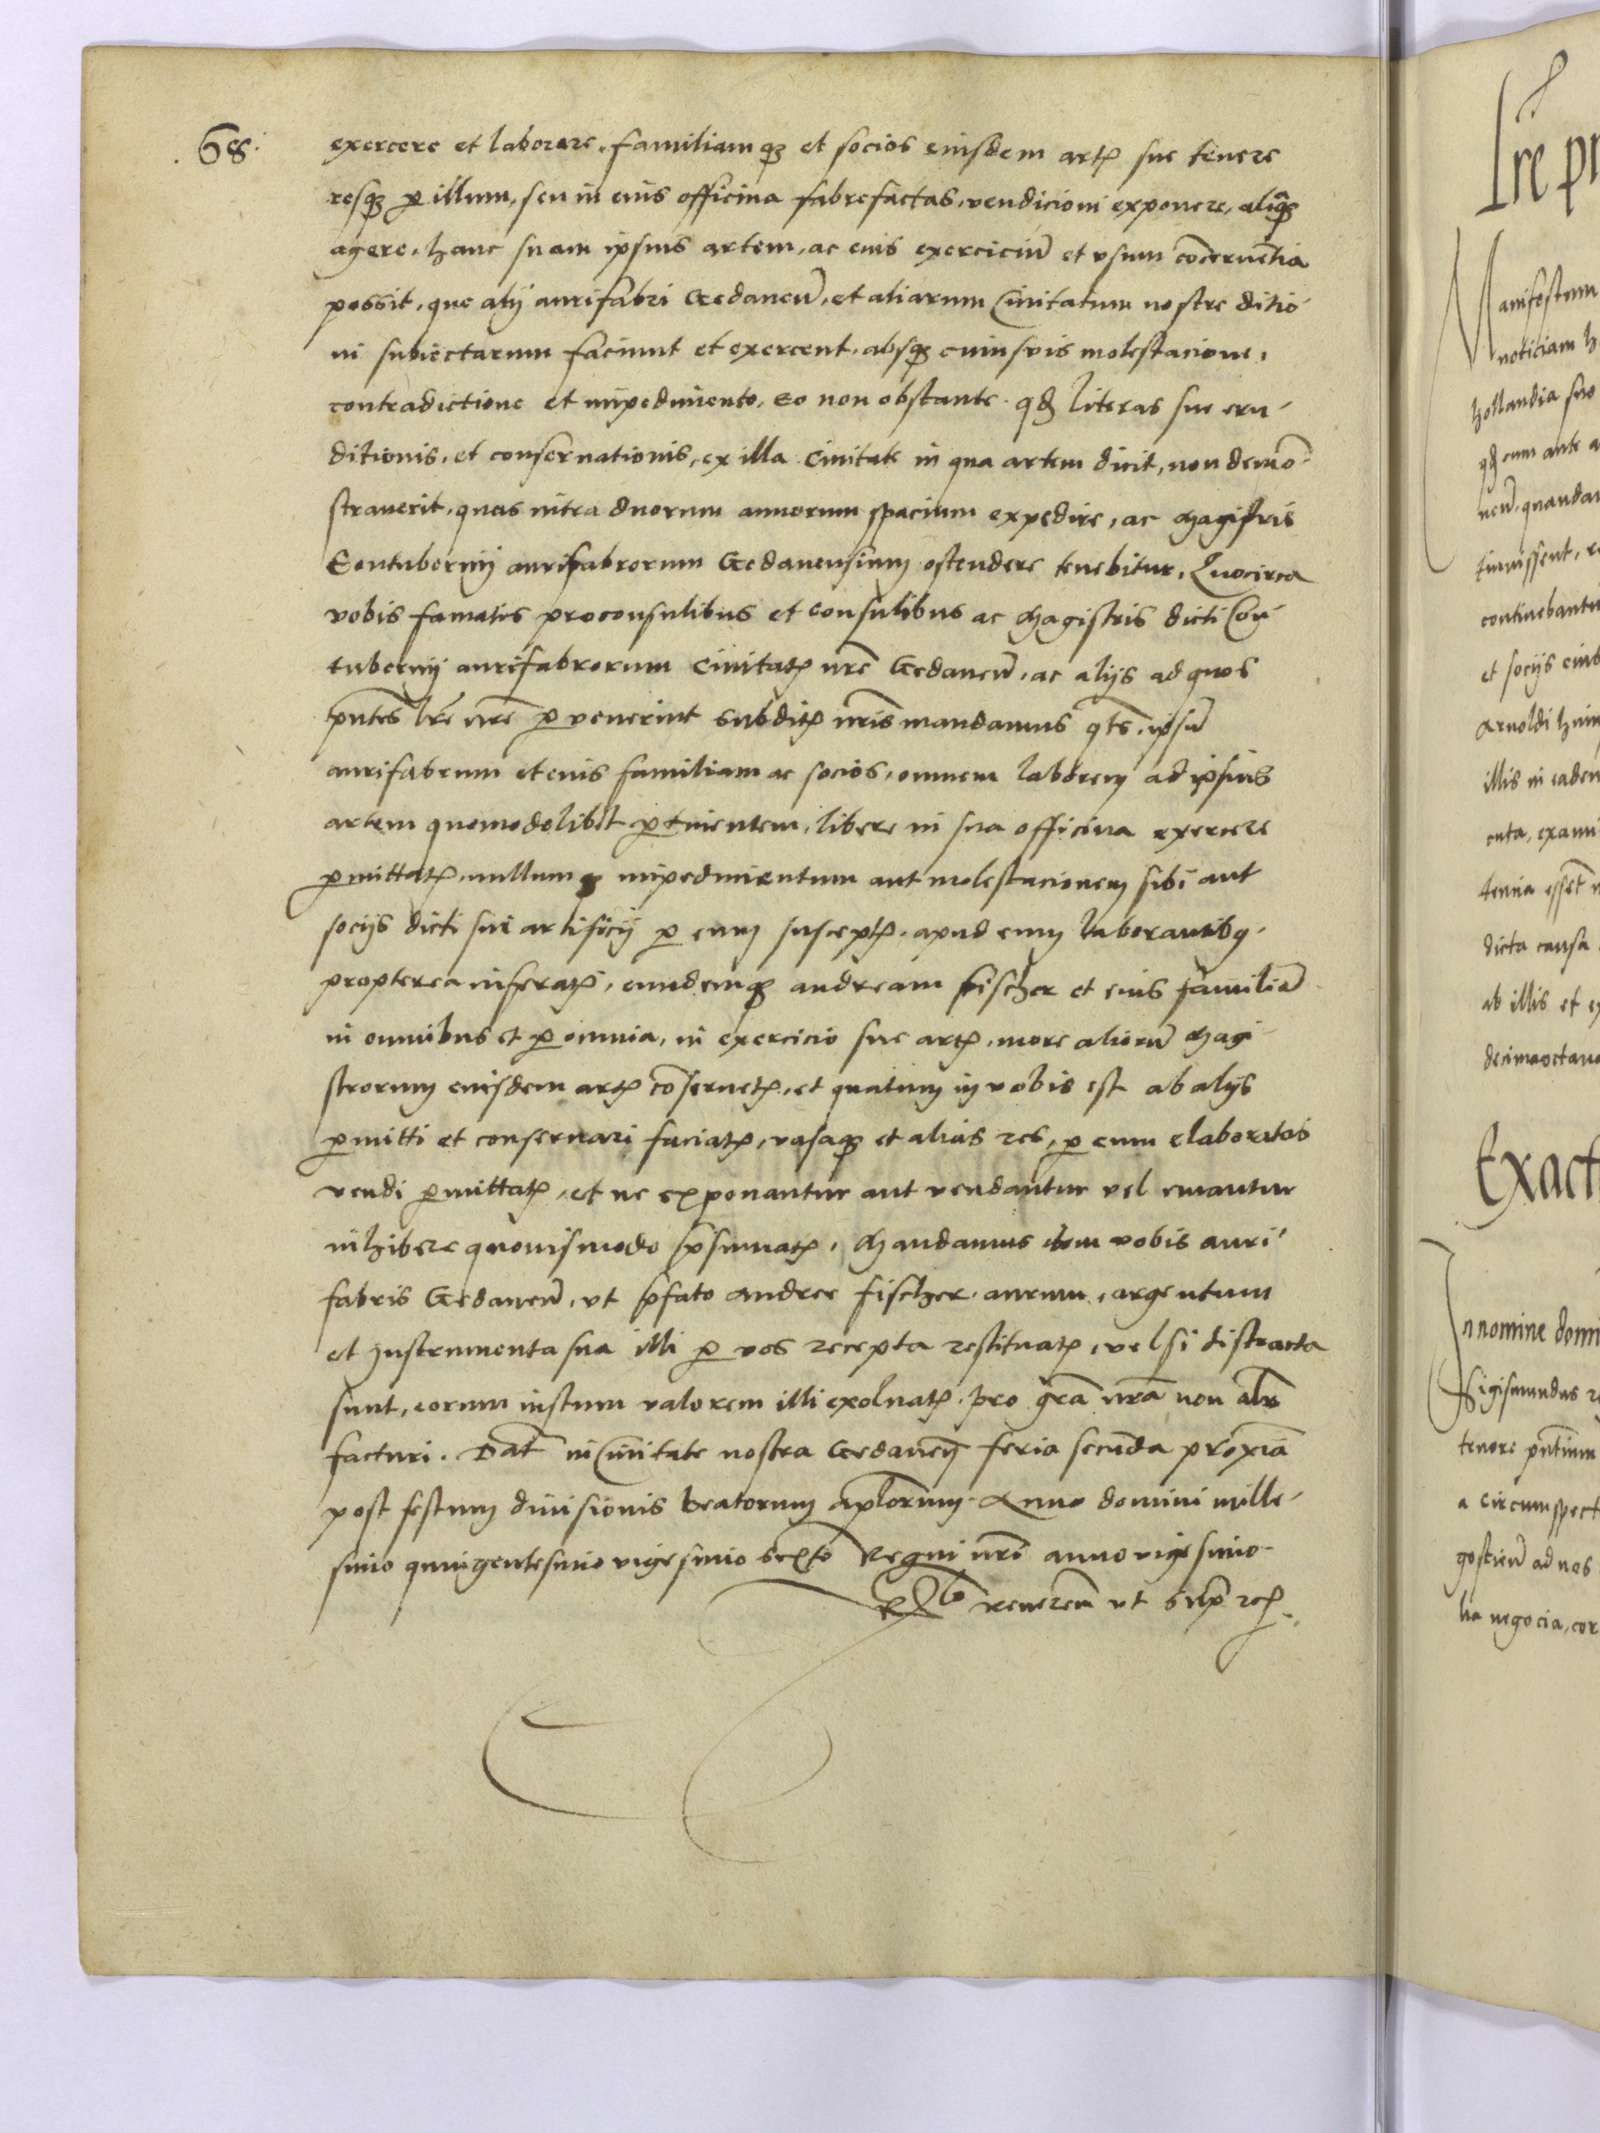 .68.
exercere et laborare, familiamqꝫ et socios eiusdem artꝭ sue tenere
resqꝫ ꝑ illum, seu in eius officina fabrefactas, vendicioni exponere, aliaqꝫ
agere, hanc suam ipsius artem, ac eius exerciciū et vsum cōcernētia
possit, que alij aurifabri Gedaneñ, et aliarum Ciuitatum nostre ditio
ni subiectarum faciunt et exercent, absqꝫ cuiusuis molestacione,
contradictione et impedimento, Eo non obstante qd literas sue eru
ditionis, et conseruationis, ex illa Ciuitate in qua artem dicit, non demō
strauerit, quas intra duorum annorum spacium expedire, ac Magistris
Contubernij aurifabrorum Gedanensium ostendere tenebitur, Quocirca
vobis famatis proconsulibus et consulibus ac Magistris dicti Con
tubernij aurifabrorum Ciuitatꝭ nr̄e Gedaneñ, ac alijs ad quos
pn̄tes lr̄e nr̄e ꝑuenerint subditꝭ nr̄is mandamus qts. ipsū
aurifabrum et eius familiam ac socios, omnem laborem ad ipsius
artem quomodolibet ꝑtinentem, libere in sua officina exercere
ꝑmittatꝭ, nullumqꝫ impedimentum aut molestacionem sibi aut
socijs dicti sui artificij ꝑ eum susceptꝭ, apud eum laborantibꝯ
propterea inferatꝭ, eundemqꝫ andream fischer et eius familiā
in omnibus et ꝑ omnia, in exercicio sue artꝭ, more aliorū Magi
strorum eiusdem artꝭ cōseruetꝭ, et quatum in vobis est ab alijs
ꝑmitti et conseruari faciatꝭ, vasaqꝫ et alias res, ꝑ eum elaboratas
vendi ꝑmittatꝭ, et ne exponantur aut vendantur vel emantur
inhibere quouismodo p̄sumatꝭ, Mandamus item vobis auri
fabris Gedaneñ, vt p̄fato Andree fischer, aurum, argentum
et Instrumenta sua illi ꝑ vos recepta restituatꝭ, vel si distracta
sunt, eorum iustum valorem illi exoluatꝭ, pro gr̄a nr̄a non alr̄
facturi. Dat̄ in Ciuitate nostra Gedaneñ feria secunda proxīa
post festum diuisionis beatorum ap̄lorum Anno domini mille
simo quingentesimo vigesimo sexto Regni nr̄i anno vigesimo
Rlo reueren̄ vt sup̄ rcꝭ.
Lr̄e pr
Manifestum
noticiam h
hollandia suo
qd cum ante a
neñ, quandam
tinuissent, r
continebantu
et socijs eius
Arnoldi huim
illis in eadem
enta, exami
tenia esset n
dicta causa
ab illis et ex
decimooctauo
Exact
In nomine domi
Sigismundus re
tenore pn̄tium
a circumspect
gostieñ ad nos
lia negocia, cor